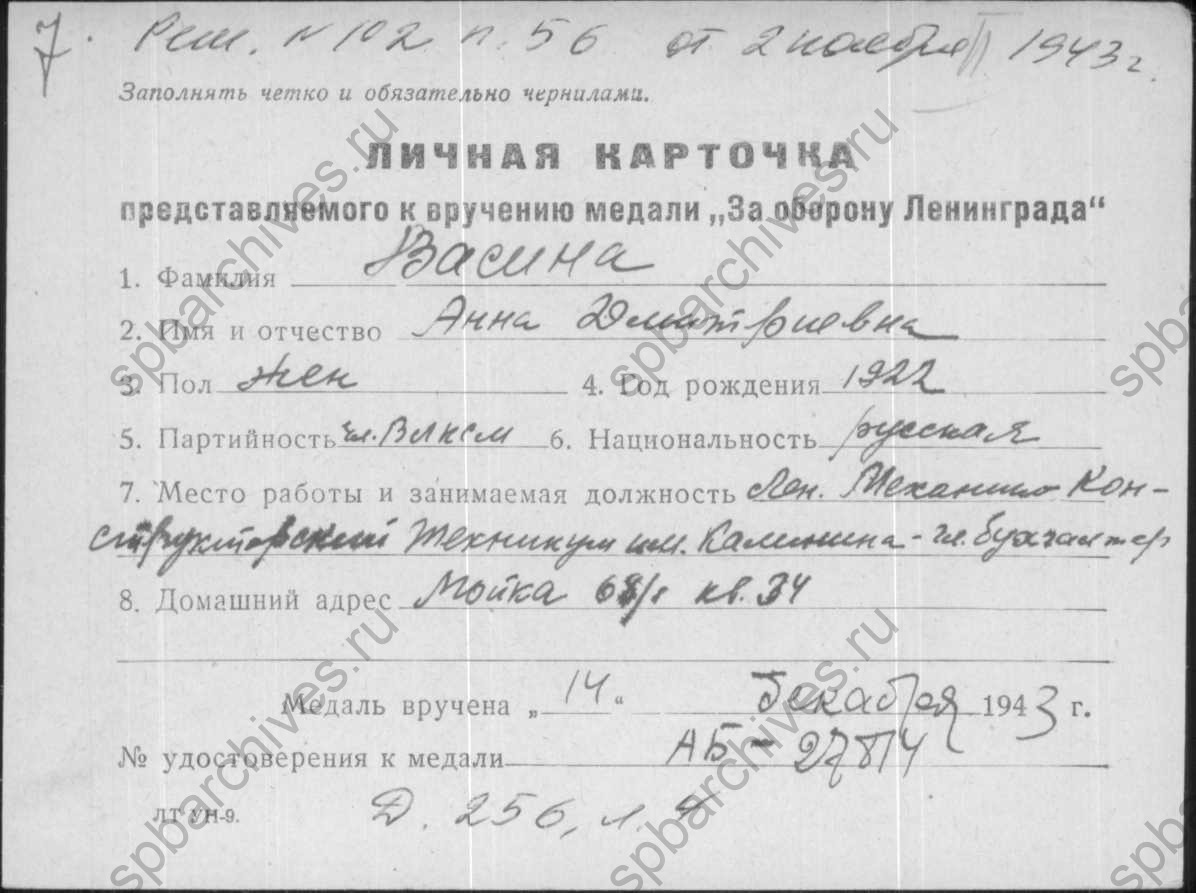 7. Реш. № 102 п. 56 от 2 ноября 1943 г.
Заполнять четко и обязательно чернилами.
ЛИЧНАЯ КАРТОЧКА
представляемого к вручению медали „За оборону Ленинграда“
1. Фамилия Васина
2. Имя и отчество Анна Дмитриевна
3. Пол жен 4. Год рождения 1922
5. Партийность чл. ВЛКСМ 6. Национальность русская
7. Место работы и занимаемая должность Лен. Механико Кон-
структорский Техникум им. Калинина - гл. бухгалтер
8. Домашний адрес Мойка кв. 34
Медаль вручена „14“ декабря 1943 г.
№ удостоверения к медали АБ-
ЛТ УН-9.
Д. 256, л.
spbarchives.ru